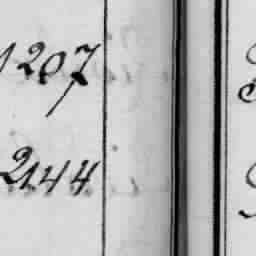 1207
2144